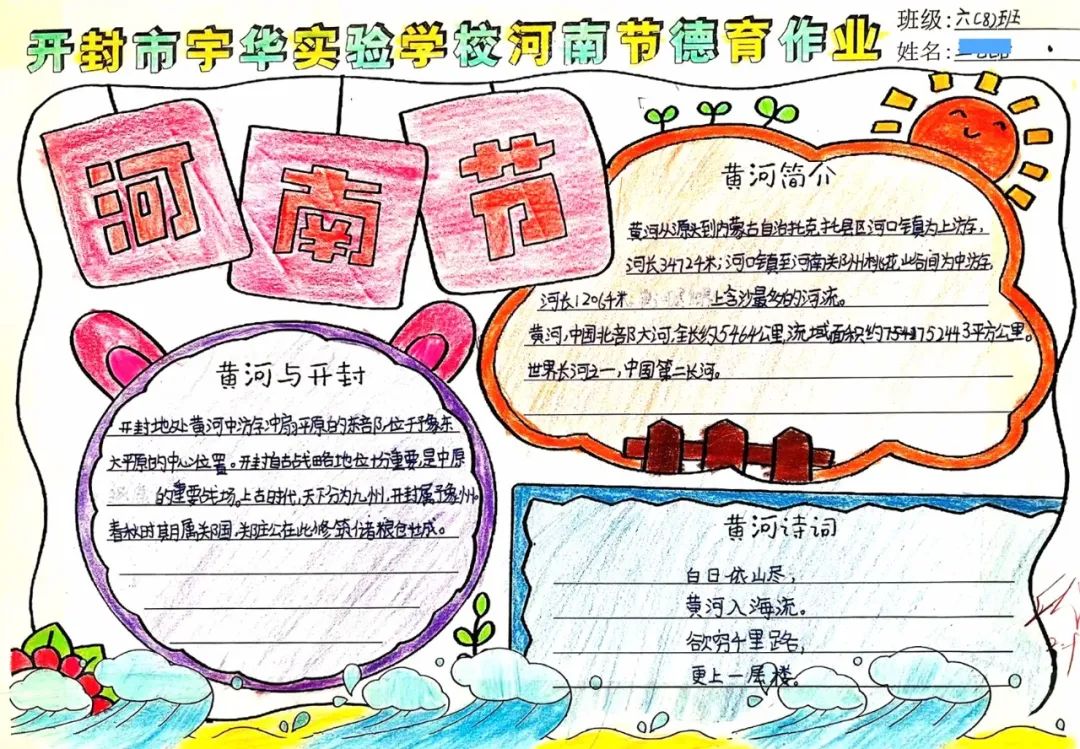 开封市宇华实验学校河南节德育作业
班级:六(8)班
姓名:
河南节
黄河简介
黄河从源头到内蒙古自治托克托县区河口镇为上游,
河长3472千米;河口镇至河南郑州桃花山谷间为中游,
河长1206千米 上含沙最多的河流。
黄河,中国北部大河,全长约5464公里,流域面积约752443平方公里。
世界长河之一,中国第二长河。
黄河与开封
开封地处黄河中游冲扇平原的东部,位于豫东
大平原的中心位置。开封自古战略地位十分重要是中原
的重要战场。上古时代,天下分为九州,开封属于豫州。
春秋时期属郑国,郑庄公在此修筑储粮仓城。
黄河诗词
白日依山尽,
黄河入海流。
欲穷千里路,
更上一层楼。